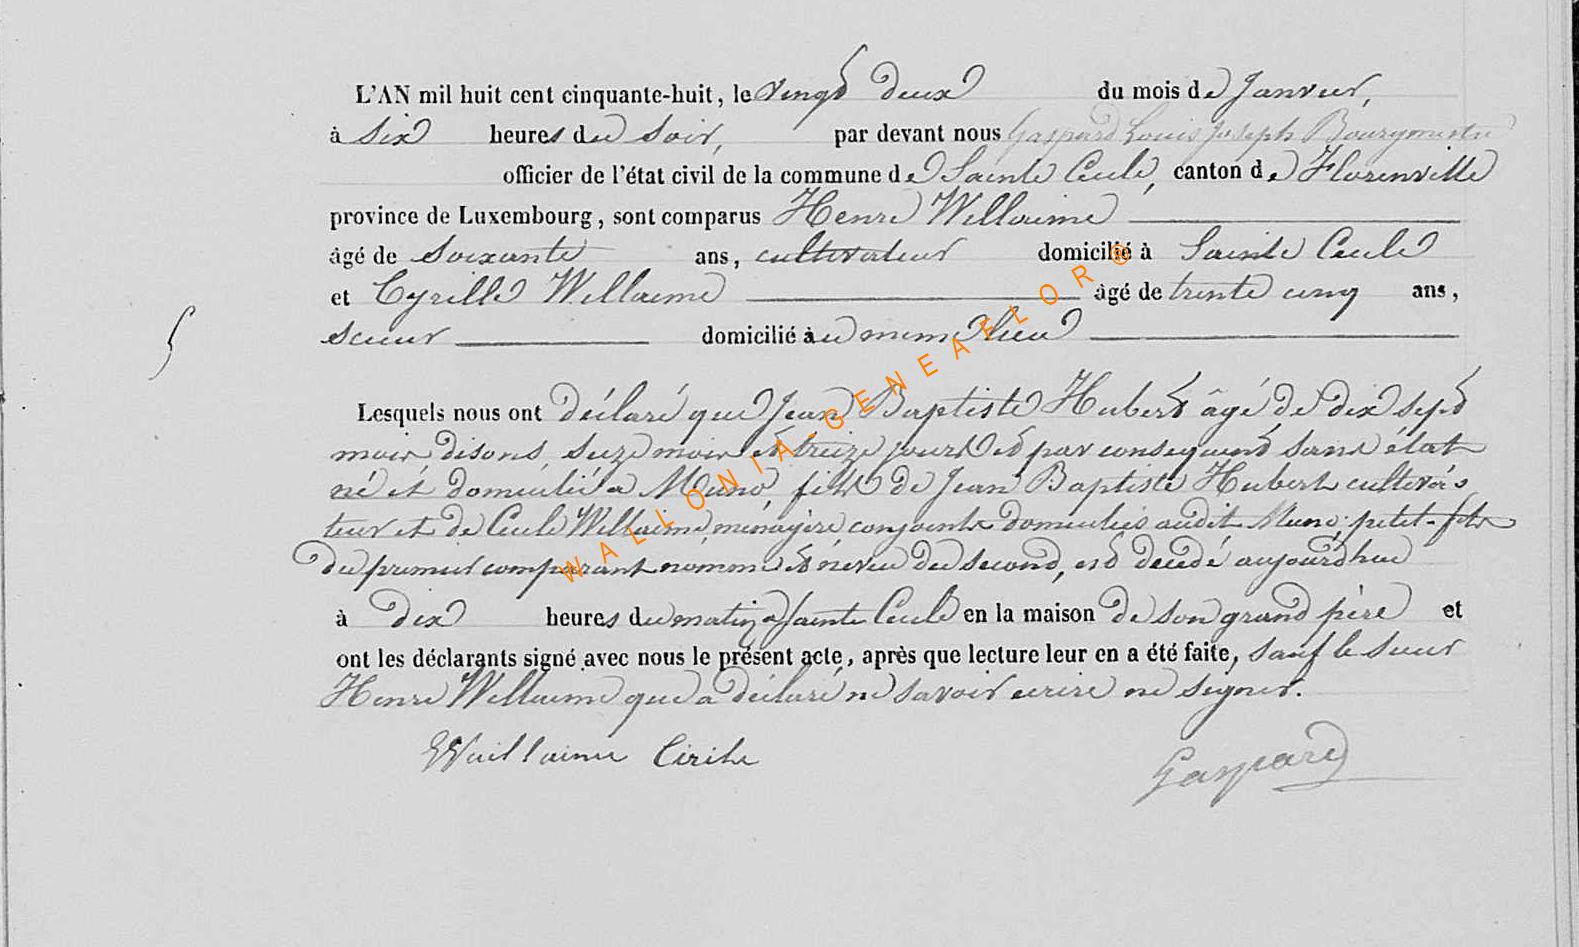 L'AN mil huit cent cinquante-huit, le vingt deux du mois de Janvier,
à six heures du soir, par devant nous Gaspard Louis Joseph Bourgmestre
officier de l'état civil de la commune de Sainte Cecile, canton de Florenville
province de Luxembourg, sont comparus Henri Willaime
âgé de soixante ans, cultivateur domicilié à Sainte Cecile
et Cyrille Willaime âgé de trente cinq ans,
scieur domicilié au meme lieu
Lesquels nous ont déclaré que Jean Baptiste Hubert âgé de dix sept
mois disons seize mois et treize jours et par consequent sans état
né et domicilié a Muno, fils de Jean Baptiste Hubert cultiva
teur et de Cecile Willaime, ménagère, conjoints domiciliés audit Muno, petit-fils
du premier comparant nommé et neveu du second, est decedé aujourd'hui
à dix heures du matin a Sainte Cecile en la maison de son grand père et
ont les déclarants signé avec nous le présent acte, après que lecture leur en a été faite, sauf le sieur
Henri Willaime qui a déclaré ne savoir ecrire ne signer.
Wuillaime Cirile
Gaspard
WALLONIA-GENEAFLOR®